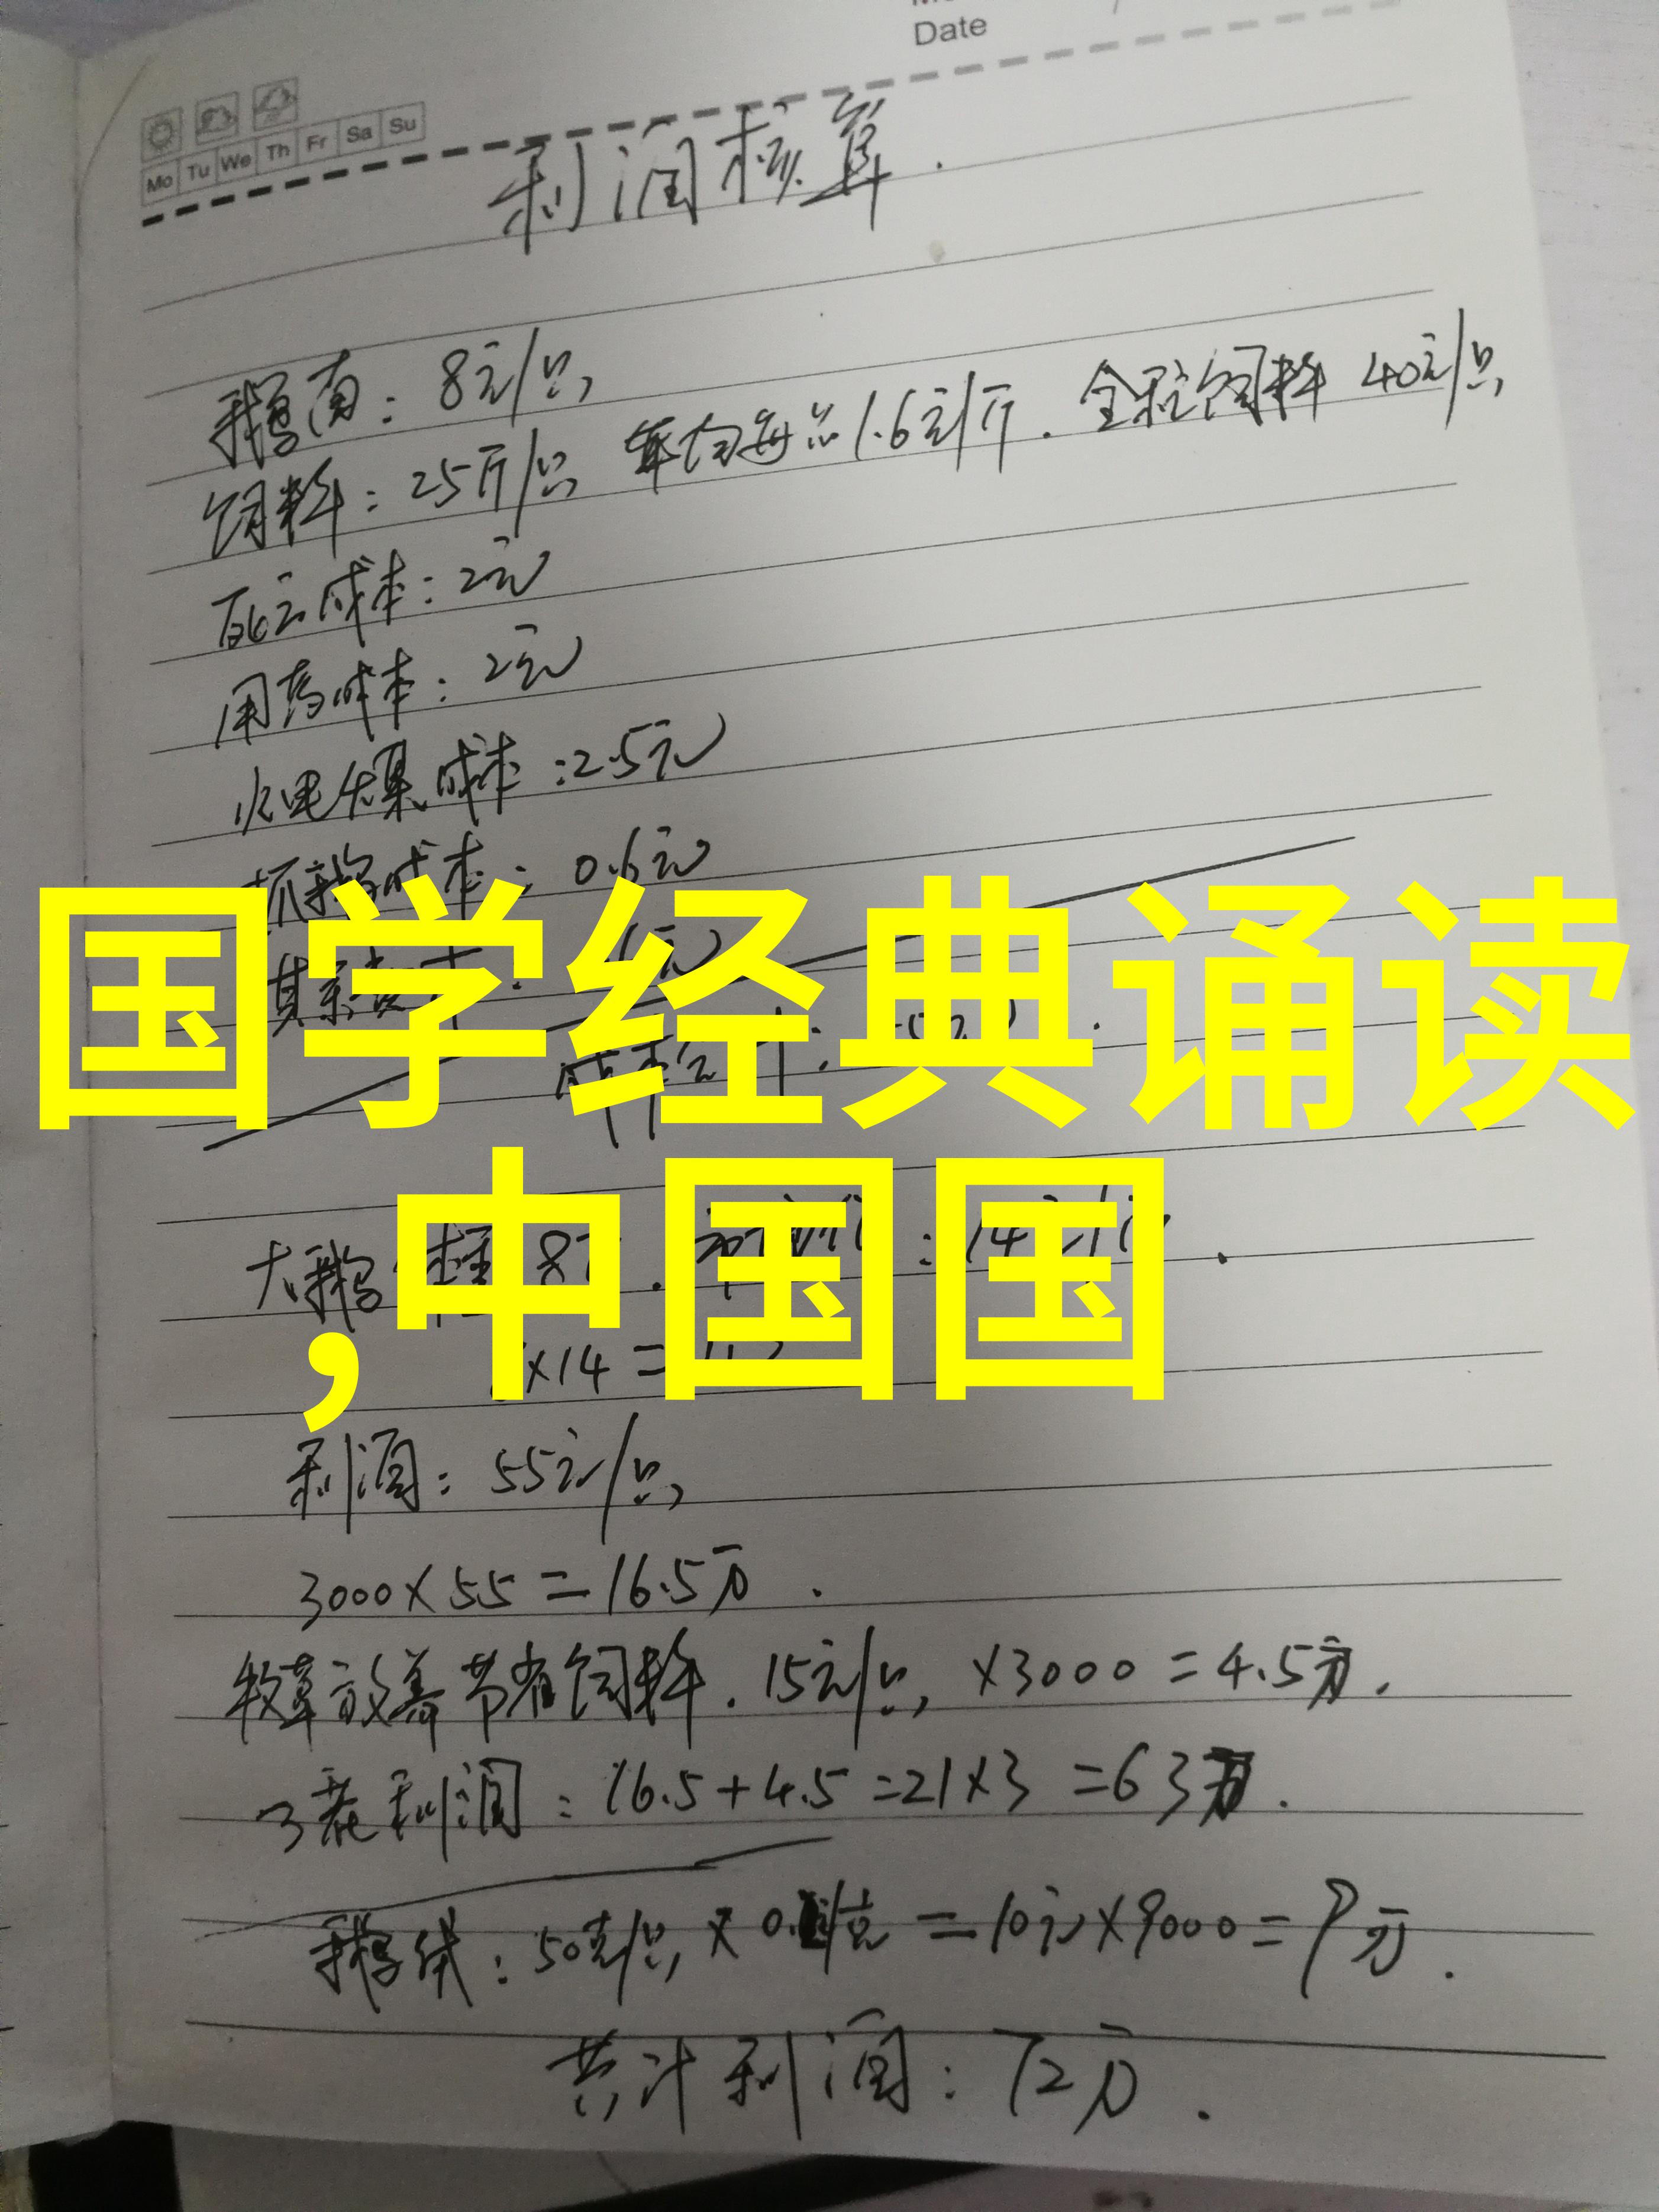 Date
Mo Tu We Th Fr Sa Su
利润核算.
鹅苗: 8元/只
饲料: 25斤/只 平均每只1.6元/斤. 全程饲料 40元/只
死亡成本: 2元
用药成本: 2元
水电煤成本: 2.5元
抓鹅成本: 0.6元
国学经典诵读
,中国国
大鹅
x14=
利润: 55元/只
3000×55=16.5万.
牧草放养节省饲料. 15元/只, ×3000=4.5万.
3茬利润: 16.5+4.5=21×3=63万.
鹅绒: 50克/只 × =10元×9000=9万.
共计利润: 72万.